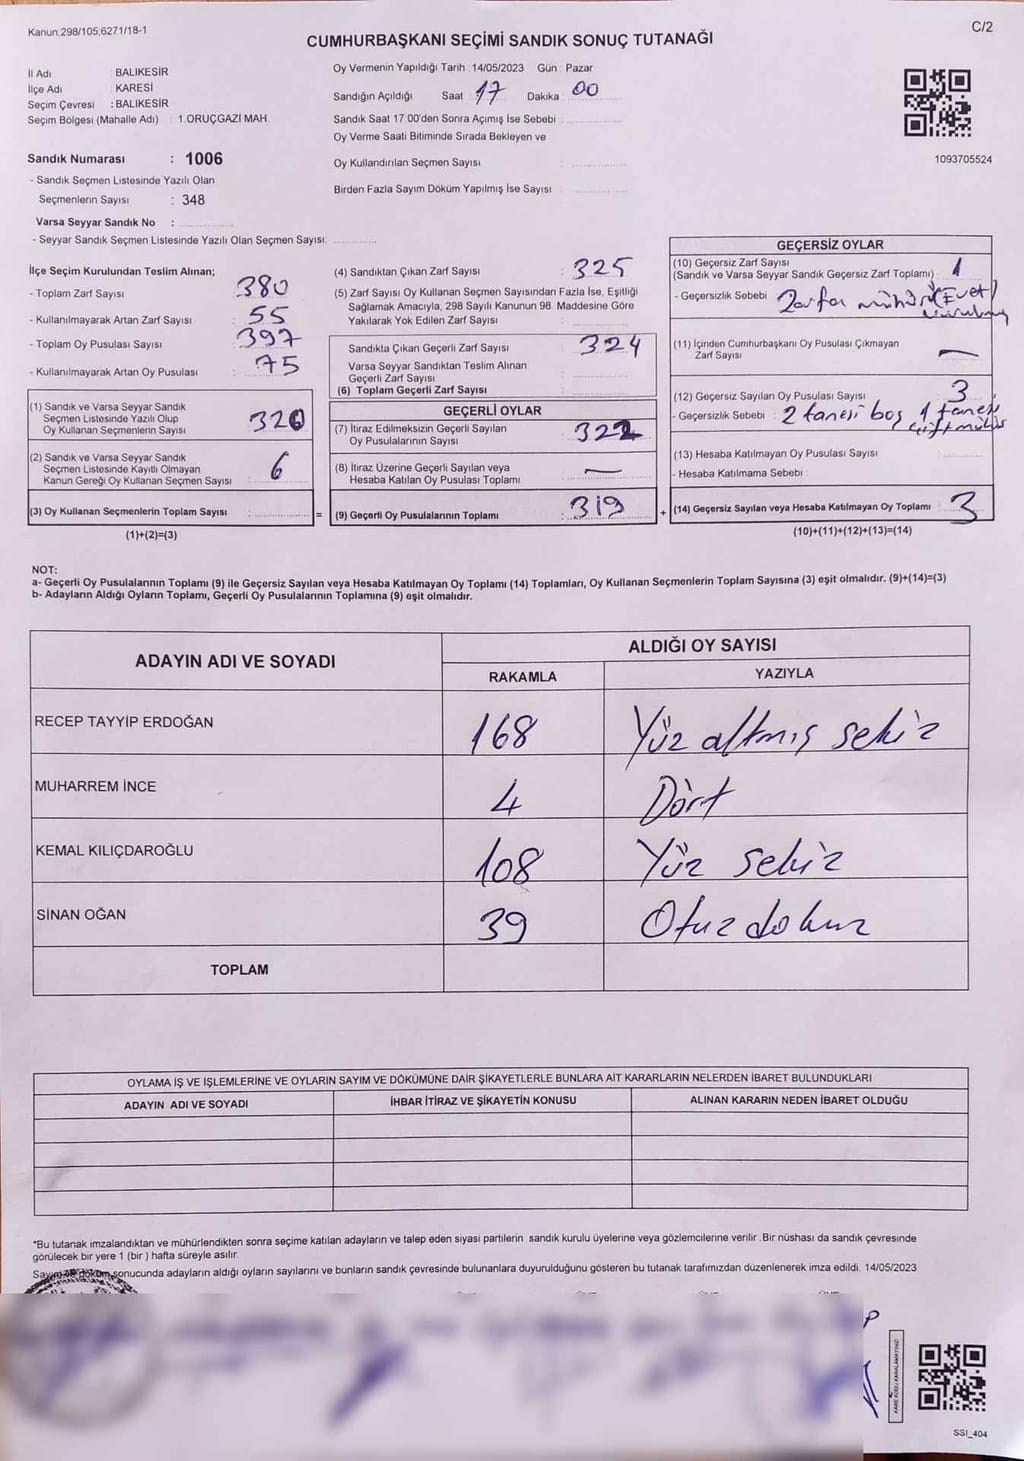 Kanun:298/105,6271/18-1
C/2
CUMHURBAŞKANI SEÇİMİ SANDIK SONUÇ TUTANAĞI
İl Adı : BALIKESİR
İlçe Adı : KARESİ
Seçim Çevresi : BALIKESİR
Seçim Bölgesi (Mahalle Adı) : 1.ORUÇGAZİ MAH.
Sandık Numarası : 1006
- Sandık Seçmen Listesinde Yazılı Olan
Seçmenlerin Sayısı : 348
Varsa Seyyar Sandık No :
- Seyyar Sandık Seçmen Listesinde Yazılı Olan Seçmen Sayısı:
Oy Vermenin Yapıldığı Tarih :14/05/2023 Gün : Pazar
Sandığın Açıldığı Saat : 17 Dakika : 00
Sandık Saat 17:00'den Sonra Açılmış İse Sebebi :
Oy Verme Saati Bitiminde Sırada Bekleyen ve
Oy Kullandırılan Seçmen Sayısı :
Birden Fazla Sayım Döküm Yapılmış İse Sayısı :
1093705524
İlçe Seçim Kurulundan Teslim Alınan;
- Toplam Zarf Sayısı : 380
- Kullanılmayarak Artan Zarf Sayısı : 55
- Toplam Oy Pusulası Sayısı : 397
- Kullanılmayarak Artan Oy Pusulası : 75
(1) Sandık ve Varsa Seyyar Sandık
Seçmen Listesinde Yazılı Olup
Oy Kullanan Seçmenlerin Sayısı : 320
(2) Sandık ve Varsa Seyyar Sandık
Seçmen Listesinde Kayıtlı Olmayan
Kanun Gereği Oy Kullanan Seçmen Sayısı : 6
(3) Oy Kullanan Seçmenlerin Toplam Sayısı : =
(1)+(2)=(3)
(4) Sandıktan Çıkan Zarf Sayısı : 325
(5) Zarf Sayısı Oy Kullanan Seçmen Sayısından Fazla İse, Eşitliği
Sağlamak Amacıyla, 298 Sayılı Kanunun 98. Maddesine Göre
Yakılarak Yok Edilen Zarf Sayısı :
Sandıkta Çıkan Geçerli Zarf Sayısı : 324
Varsa Seyyar Sandıktan Teslim Alınan
Geçerli Zarf Sayısı :
(6) Toplam Geçerli Zarf Sayısı :
GEÇERLİ OYLAR
(7) İtiraz Edilmeksizin Geçerli Sayılan
Oy Pusulalarının Sayısı : 322
(8) İtiraz Üzerine Geçerli Sayılan veya
Hesaba Katılan Oy Pusulası Toplamı : —
(9) Geçerli Oy Pusulalarının Toplamı : 319 +
GEÇERSİZ OYLAR
(10) Geçersiz Zarf Sayısı
(Sandık ve Varsa Seyyar Sandık Geçersiz Zarf Toplamı) : 1
- Geçersizlik Sebebi : Zarfa mühür (Evet)
vurulmuş
(11) İçinden Cumhurbaşkanı Oy Pusulası Çıkmayan
Zarf Sayısı : —
(12) Geçersiz Sayılan Oy Pusulası Sayısı : 3
- Geçersizlik Sebebi : 2 tanesi boş 1 tanesi
çift mühür
(13) Hesaba Katılmayan Oy Pusulası Sayısı :
- Hesaba Katılmama Sebebi :
(14) Geçersiz Sayılan veya Hesaba Katılmayan Oy Toplamı : 3
(10)+(11)+(12)+(13)=(14)
NOT:
a- Geçerli Oy Pusulalarının Toplamı (9) ile Geçersiz Sayılan veya Hesaba Katılmayan Oy Toplamı (14) Toplamları, Oy Kullanan Seçmenlerin Toplam Sayısına (3) eşit olmalıdır. (9)+(14)=(3)
b- Adayların Aldığı Oyların Toplamı, Geçerli Oy Pusulalarının Toplamına (9) eşit olmalıdır.
ADAYIN ADI VE SOYADI
ALDIĞI OY SAYISI
RAKAMLA YAZIYLA
RECEP TAYYİP ERDOĞAN 168 Yüz altmış sekiz
MUHARREM İNCE 4 Dört
KEMAL KILIÇDAROĞLU 108 Yüz sekiz
SİNAN OĞAN 39 Otuz dokuz
TOPLAM
OYLAMA İŞ VE İŞLEMLERİNE VE OYLARIN SAYIM VE DÖKÜMÜNE DAİR ŞİKAYETLERLE BUNLARA AİT KARARLARIN NELERDEN İBARET BULUNDUKLARI
ADAYIN ADI VE SOYADI İHBAR İTİRAZ VE ŞİKAYETİN KONUSU ALINAN KARARIN NEDEN İBARET OLDUĞU
*Bu tutanak imzalandıktan ve mühürlendikten sonra seçime katılan adayların ve talep eden siyasi partilerin sandık kurulu üyelerine veya gözlemcilerine verilir .Bir nüshası da sandık çevresinde
görülecek bir yere 1 (bir ) hafta süreyle asılır.
Sayım ve döküm sonucunda adayların aldığı oyların sayılarını ve bunların sandık çevresinde bulunanlara duyurulduğunu gösteren bu tutanak tarafımızdan düzenlenerek imza edildi. 14/05/2023
KARE KODU KARALAMAYINIZ!
SSI_404